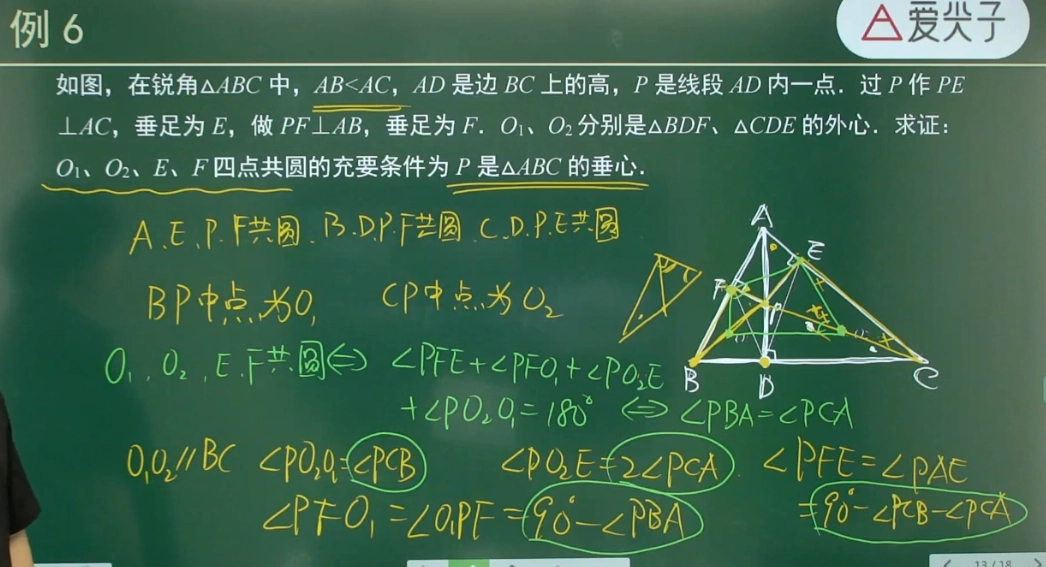 例 6
爱尖子
如图，在锐角△ABC 中，AB<AC，AD 是边 BC 上的高，P 是线段 AD 内一点．过 P 作 PE
⊥AC，垂足为 E，做 PF⊥AB，垂足为 F．O₁、O₂ 分别是△BDF、△CDE 的外心．求证：
O₁、O₂、E、F 四点共圆的充要条件为 P 是△ABC 的垂心．
A.E.P.F共圆．B.D.P.F共圆．C.D.P.E共圆
BP中点为O₁ CP中点为O₂
O₁．O₂．E.F共圆⇔ ∠PFE+∠PFO₁+∠PO₂E
+∠PO₂O₁=180° ⇔ ∠PBA=∠PCA
O₁O₂//BC ∠PO₂O₁=∠PCB ∠PO₂E=2∠PCA． ∠PFE=∠PAE
∠PFO₁=∠O₁PF=90°-∠PBA =90°-∠PCB-∠PCA
A
E
F
P
B
D
C
13/18